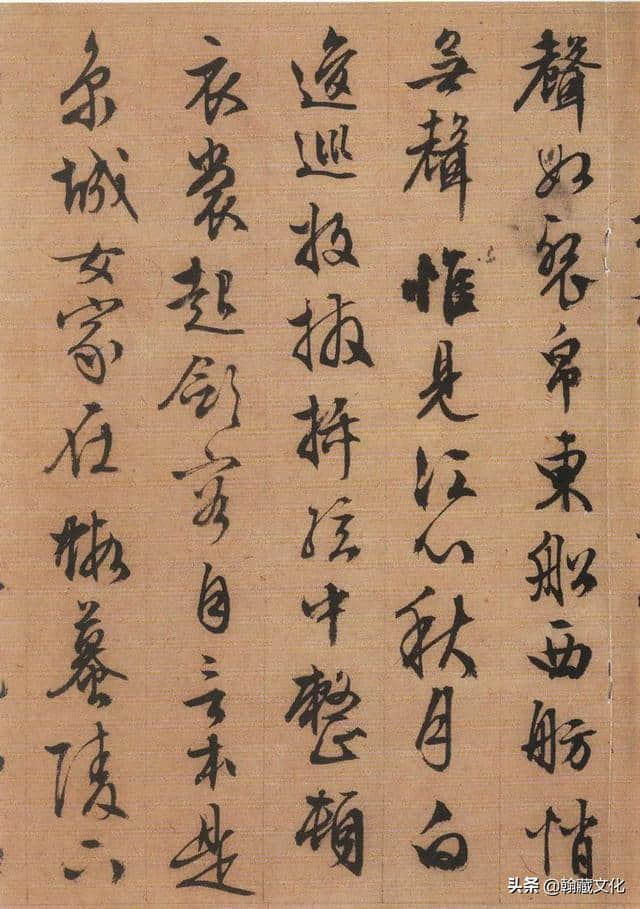 聲如裂帛東船西舫悄
無聲惟見江心秋月白
逡巡放撥插絃中整頓
衣裳起斂容自言本是
京城女家在蝦蟇陵下
头条 @翰藏文化